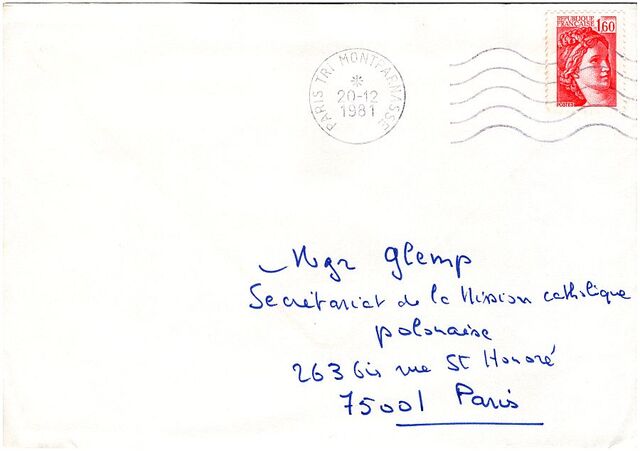 REPUBLIQUE
FRANÇAISE 1,60
POSTES
PARIS TRI MONTPARNASSE
20-12
1981
Mgr Glemp
Secrétariat de la Mission catholique
polonaise
263 bis rue St Honoré
75001 Paris